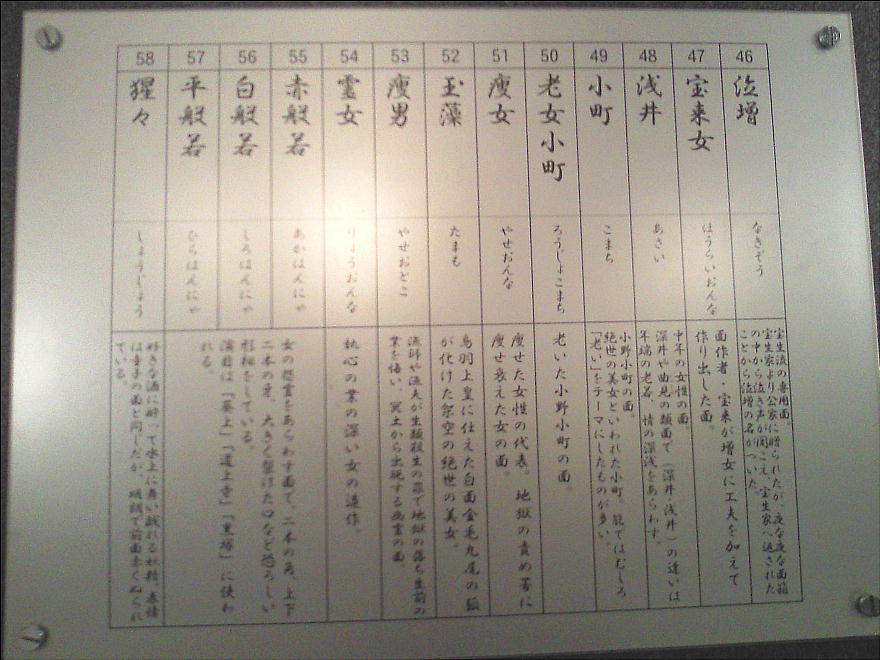 46
泣増
なきぞう
宝生流の専用面。
宝生家より公家に贈られたが、夜な夜な面箱
の中から泣き声が聞こえ、宝生家へ返された
ことから泣増の名がついた。
47
宝来女
ほうらいおんな
面作者・宝来が増女に工夫を加えて
作り出した面。
48
浅井
あさい
中年の女性の面。
深井や曲見の類面で（深井・浅井）の違いは
年端の老若、情の深浅をあらわす。
49
小町
こまち
小野小町の面。
絶世の美女といわれた小町。能ではむしろ
「老い」をテーマにしたものが多い。
50
老女小町
ろうじょこまち
老いた小野小町の面。
51
痩女
やせおんな
痩せた女性の代表。地獄の責め苦に
痩せ衰えた女の面。
52
玉藻
たまも
鳥羽上皇に仕えた白面金毛九尾の狐
が化けた架空の絶世の美女。
53
痩男
やせおとこ
漁師や漁夫が生類殺生の罪で地獄の落ち生前の
業を悔い、冥土から出現する幽霊の面。
54
霊女
りょうおんな
執心の業の深い女の造作。
55
赤般若
あかはんにゃ
56
白般若
しろはんにゃ
57
平般若
ひらはんにゃ
女の怨霊をあらわす面で、二本の角、上下
二本の牙、大きく裂けた口など恐ろしい
形相をしている。
演目は「葵上」「道上寺」「黒塚」に使わ
れる。
58
猩々
しょうじょう
好きな酒に酔って水上に舞い戯れる妖精。表情
は童子の面と同じだが、明朗で前面赤くぬられ
ている。